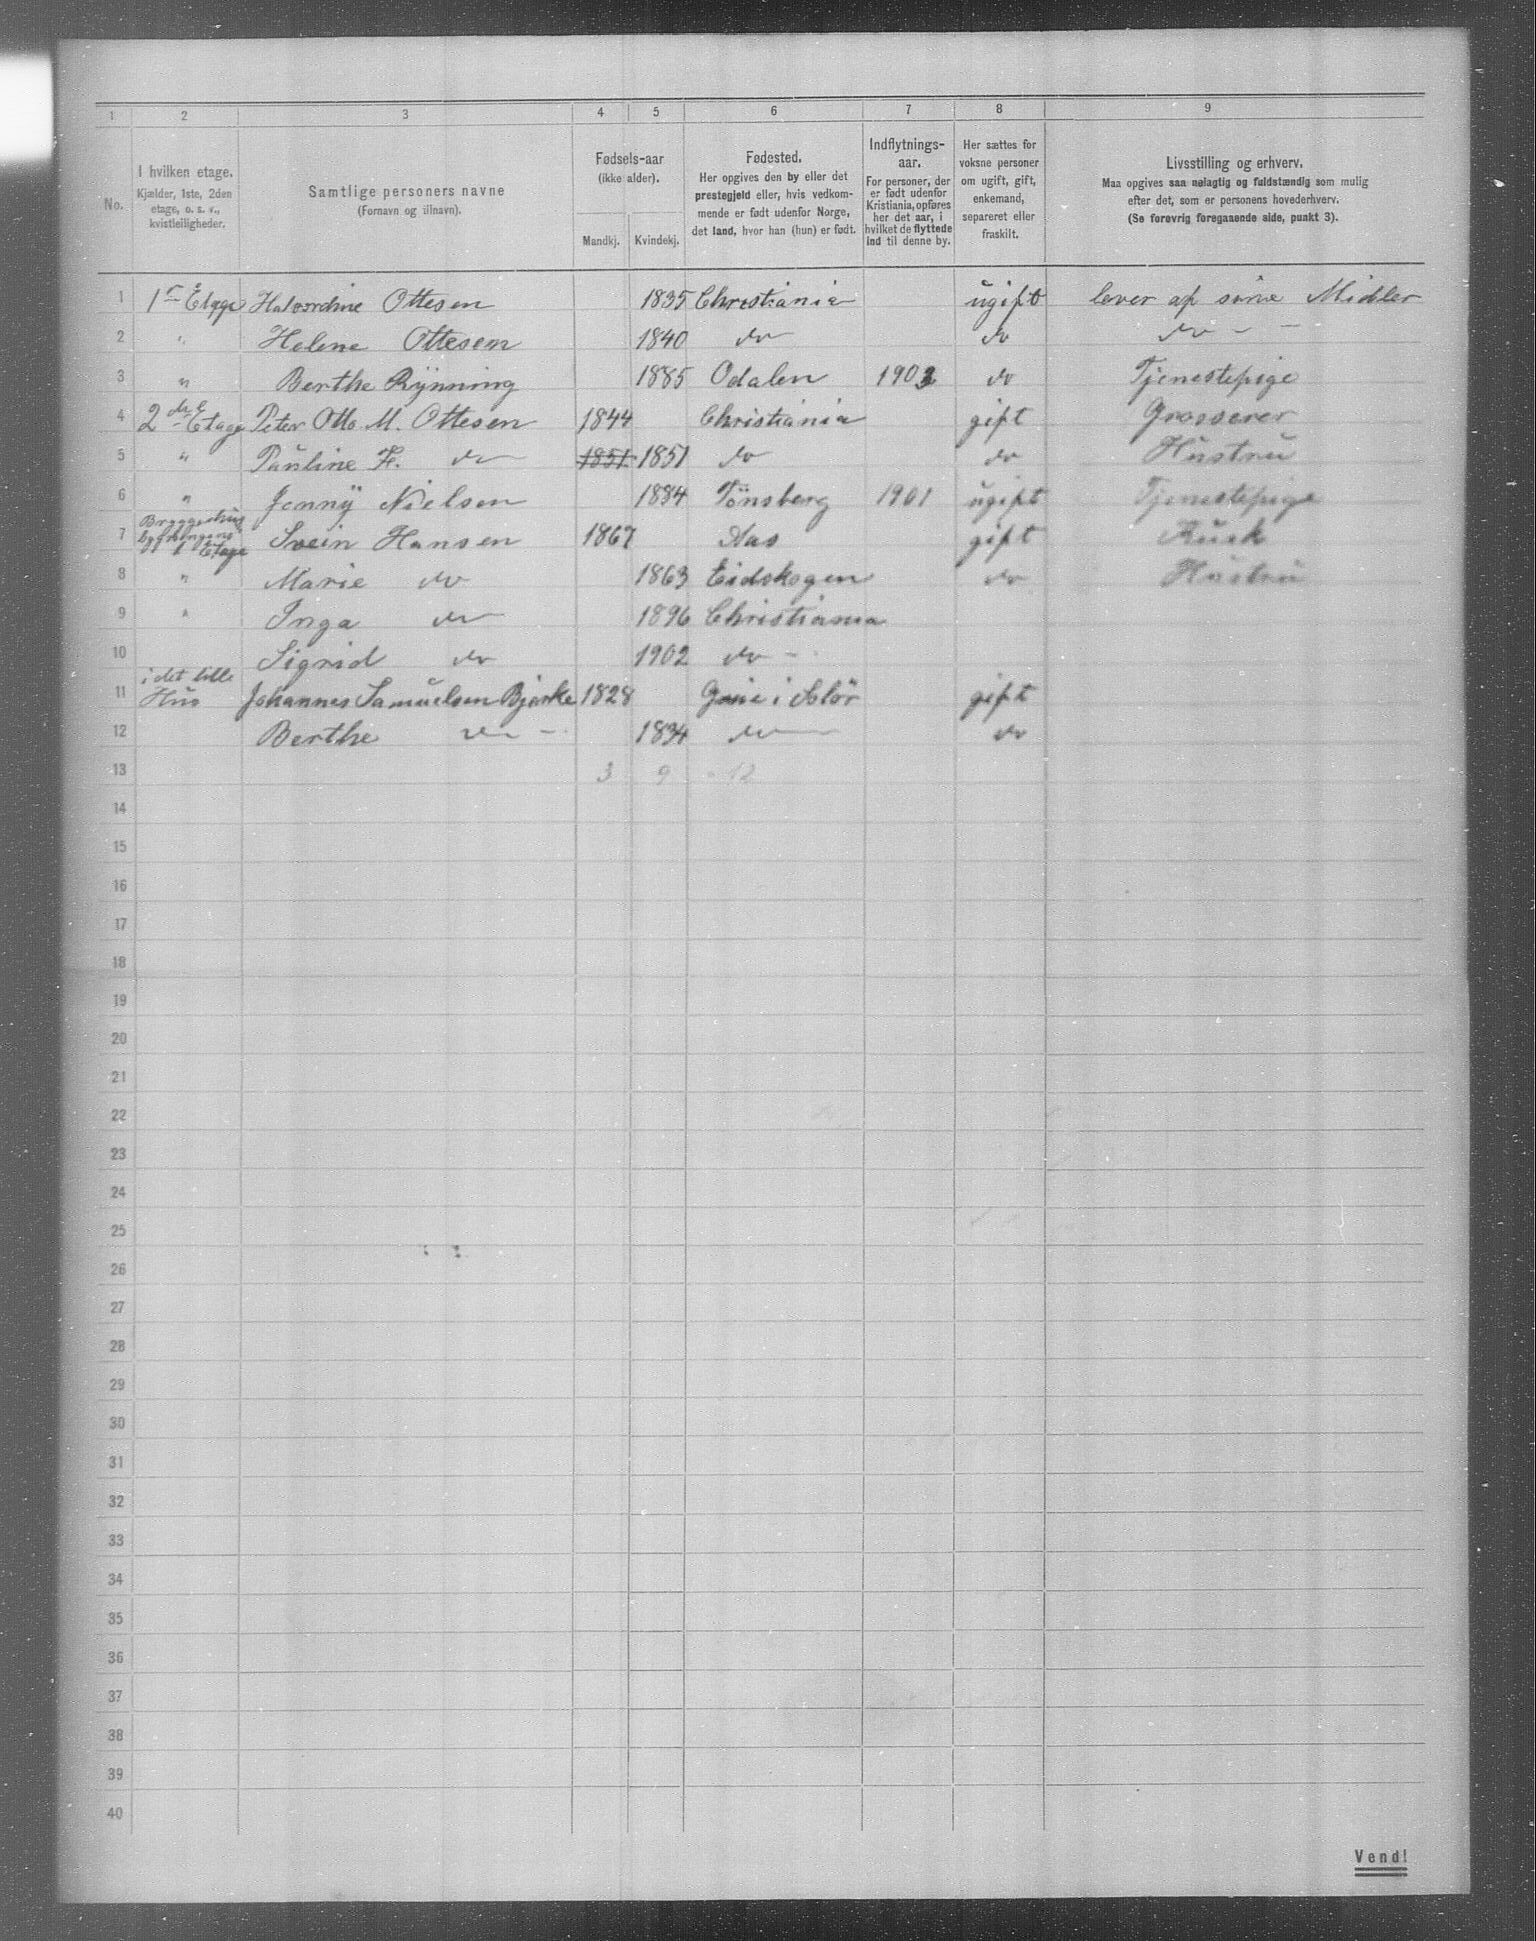 1 2 3 4 5 6 7 8 9
No.
I hvilken etage.
Kjælder, 1ste, 2den
etage, o. s. v.,
kvistleiligheder.
Samtlige personers navne
(Fornavn og tilnavn).
Fødsels-aar
(ikke alder).
Mandkj. Kvindekj.
Fødested.
Her opgives den by eller det
prestegjeld eller, hvis vedkom-
mende er født udenfor Norge,
det land, hvor han (hun) er født.
Indflytnings-
aar.
For personer, der
er født udenfor
Kristiania, opføres
her det aar, i
hvilket de flyttede
ind til denne by.
Her sættes for
voksne personer
om ugift, gift,
enkemand,
separeret eller
fraskilt.
Livsstilling og erhverv.
Maa opgives saa nøiagtig og fuldstændig som mulig
efter det, som er personens hovederhverv.
(Se forøvrig foregaaende side, punkt 3).
1 1r Etage Halvordine Ottesen 1835 Christiania ugift lever af sine Midler
2 " Helene Ottesen 1840 do do do - -
3 " Berthe Rÿnning 1885 Odalen 1903 do Tjenestepige
4 2den Etage Peter Otto M. Ottesen 1844 Christiania gift Grosserer
5 " Pauline F. do 1851 1851 do do Hustru
6 " Jennÿ Nielsen 1884 Tönsberg 1901 ugift Tjenestepige
Bryggerhus
bygningens
7 1 Etage Svein Hansen 1867 Aas gift Kusk
8 " Marie do 1863 Eidskogen do Hustru
9 " Inga do 1896 Christiania
10 Sigrid do 1902 do -
i det lille
11 Hus Johannes Samuelsen Bjerke 1828 i Solör gift
12 Berthe do - 1834 do do
13 3 9 - 12
14
15
16
17
18
19
20
21
22
23
24
25
26
27
28
29
30
31
32
33
34
35
36
37
38
39
40
Vend!